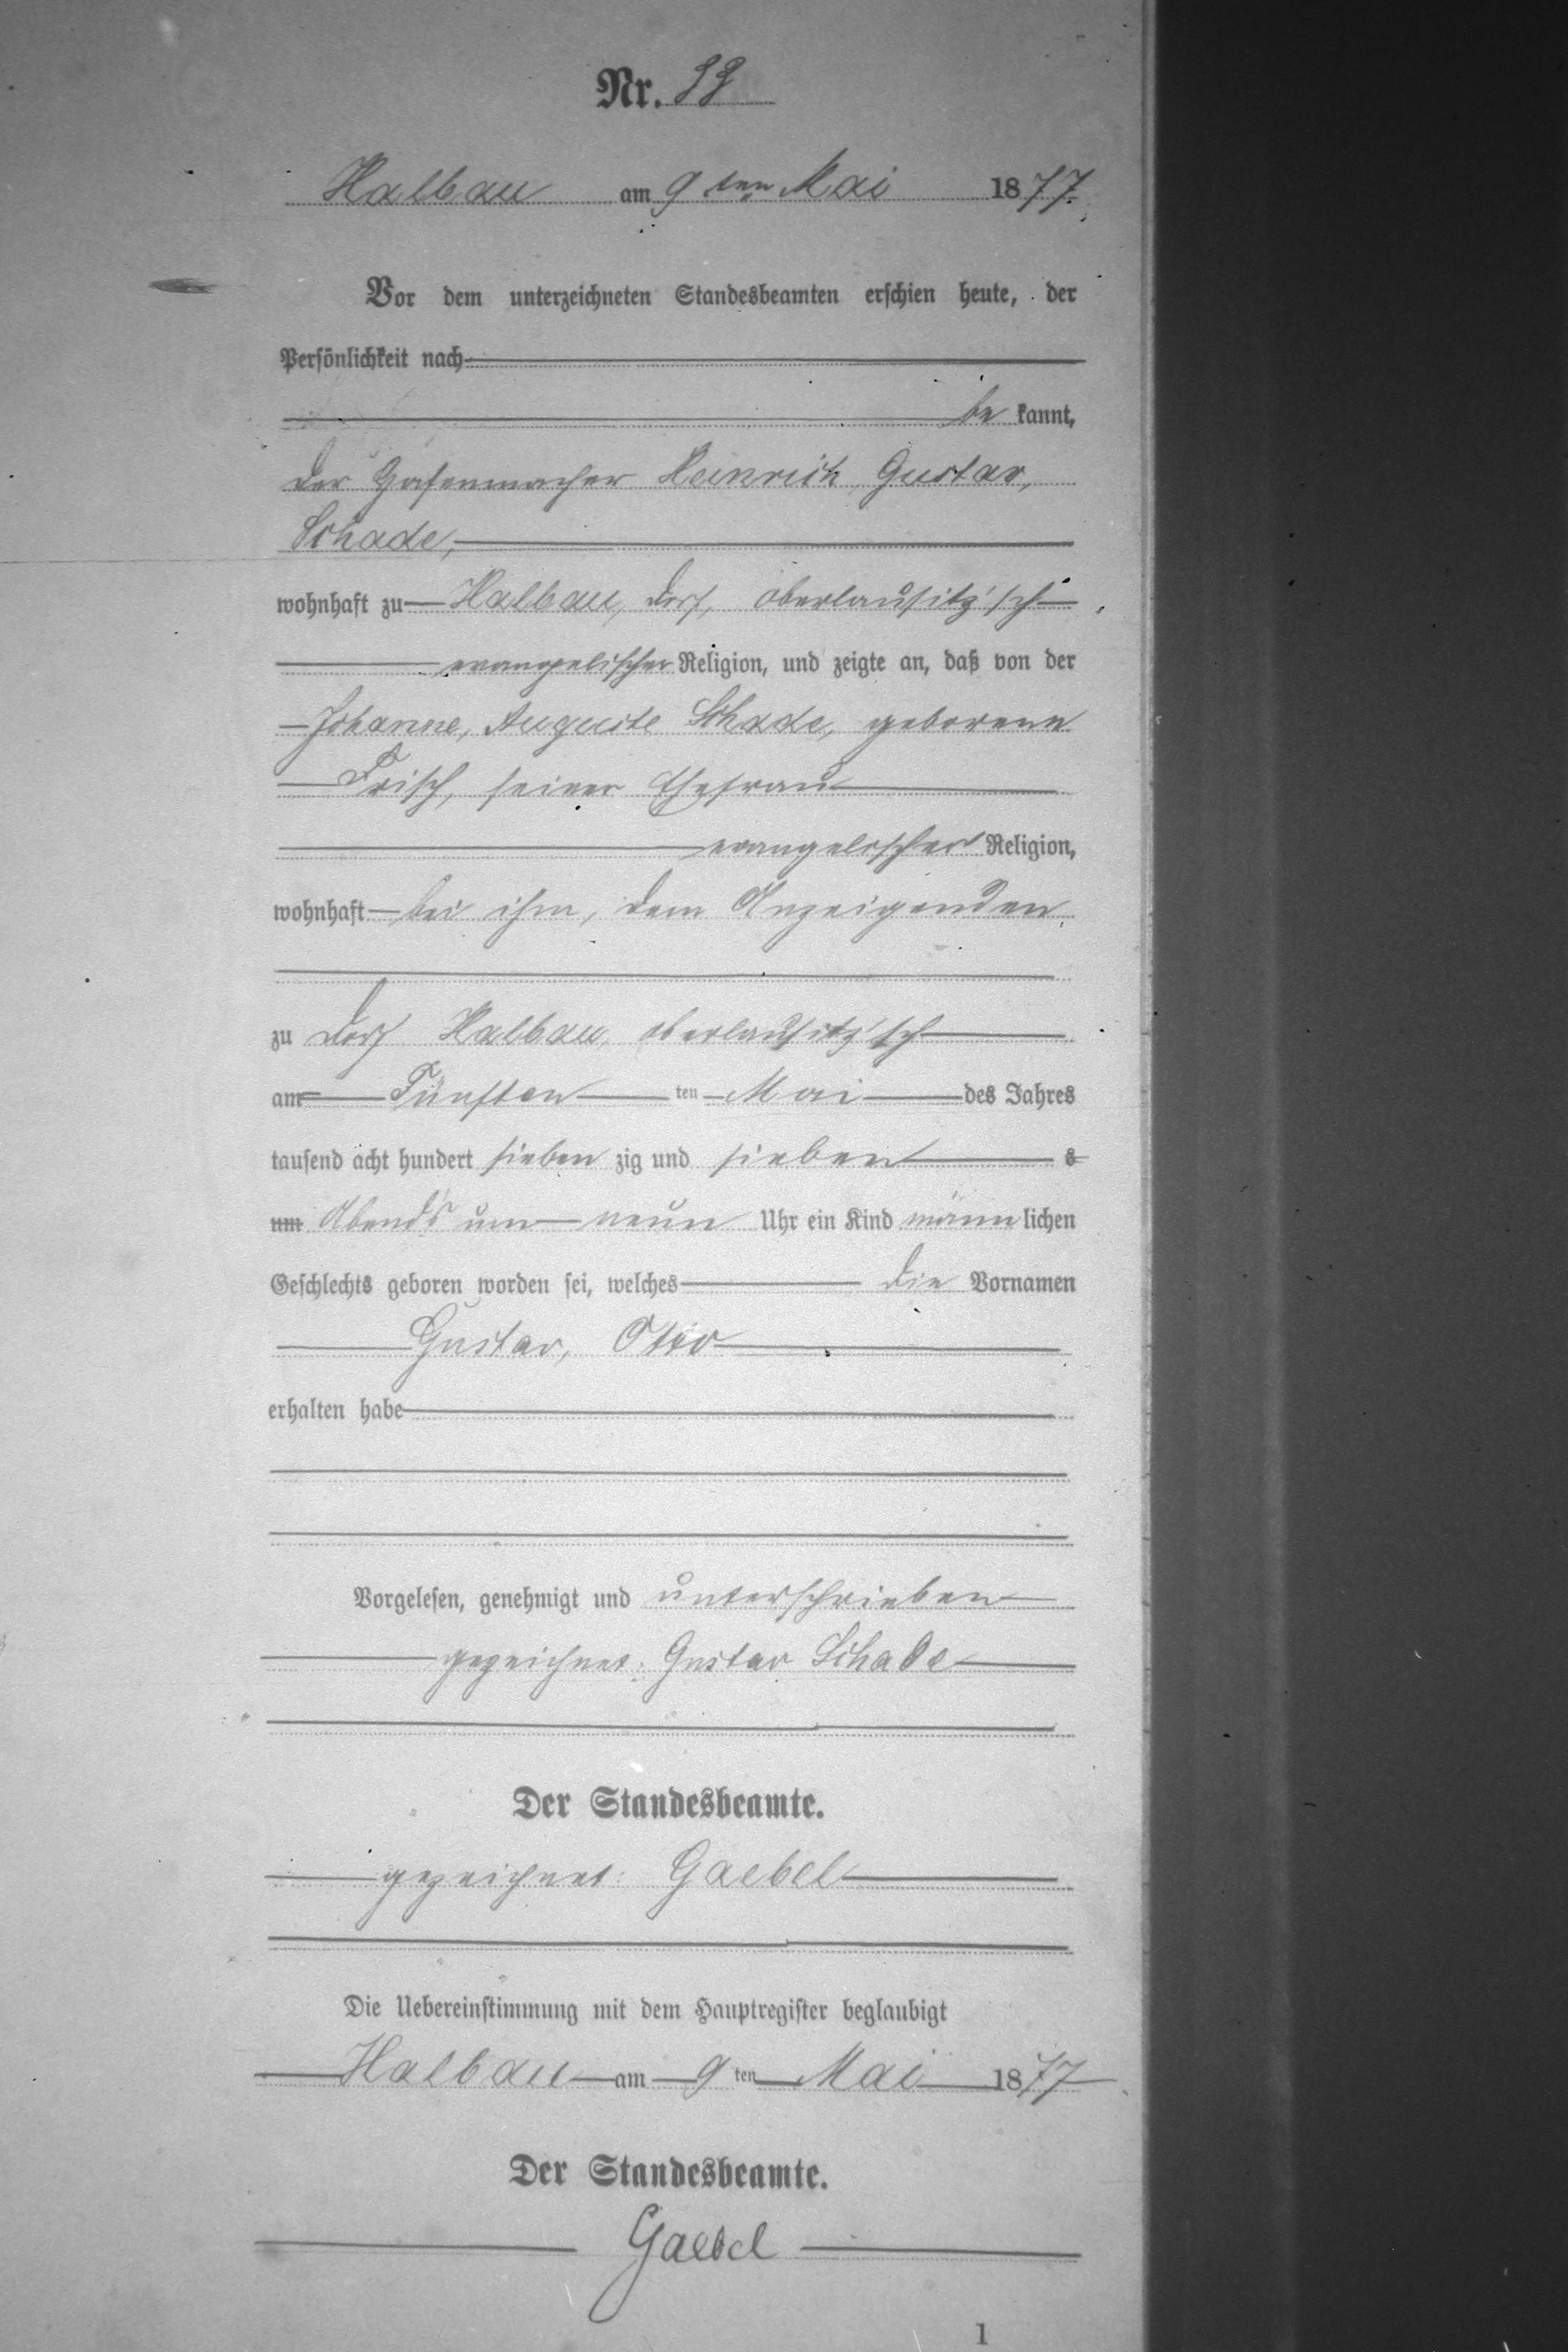 Nr. 33
Halbau am 9ten Mai 1877.
Vor dem unterzeichneten Standesbeamten erschien heute, der
Persönlichkeit nach
be kannt,
der Hosenmacher Heinrich Gustav,
Schade,
wohnhaft zu Halbau, Dorf, oberlausitz'sch
evangelischer Religion, und zeigte an, daß von der
Johanne, Auguste Schade, geborene
Frisch, seiner Ehefrau
evangelischer Religion,
wohnhaft bei ihm, dem Anzeigenden,
zu Dorf Halbau, oberlausitz'sch
am Fünften ten Mai des Jahres
tausend acht hundert sieben zig und sieben s
um Abends um neun Uhr ein Kind männ lichen
Geschlechts geboren worden sei, welches die Vornamen
Gustav, Otto
erhalten habe
Vorgelesen, genehmigt und unterschrieben
gezeichnet: Gustav Schade
Der Standesbeamte.
gezeichnet: Gaebel
Die Uebereinstimmung mit dem Hauptregister beglaubigt
Halbau am 9 ten Mai 1877
Der Standesbeamte.
Gaebel
1